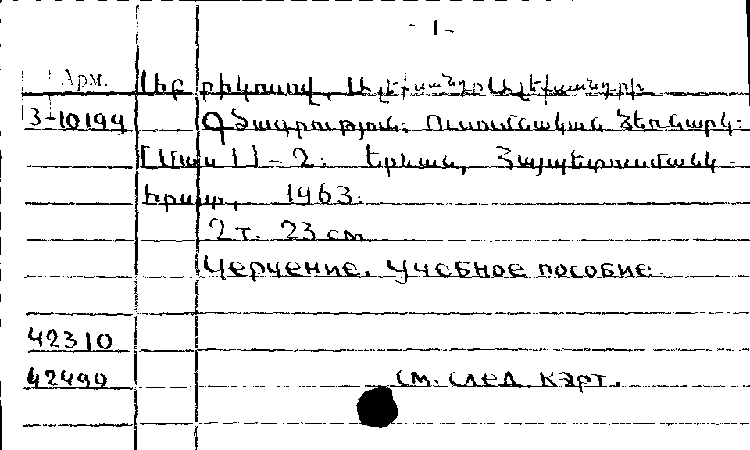 - 1 -
Арм.
3-10194 Գծագրություն: Ուսումնական ձեռնարկ:
[Մաս] 1 - 2: Երևան, Հայպետուսմանկ-
հրատ, 1963.
2 т. 23 см
Черчение. Учебное пособие.
42310
42490 См. след. карт.